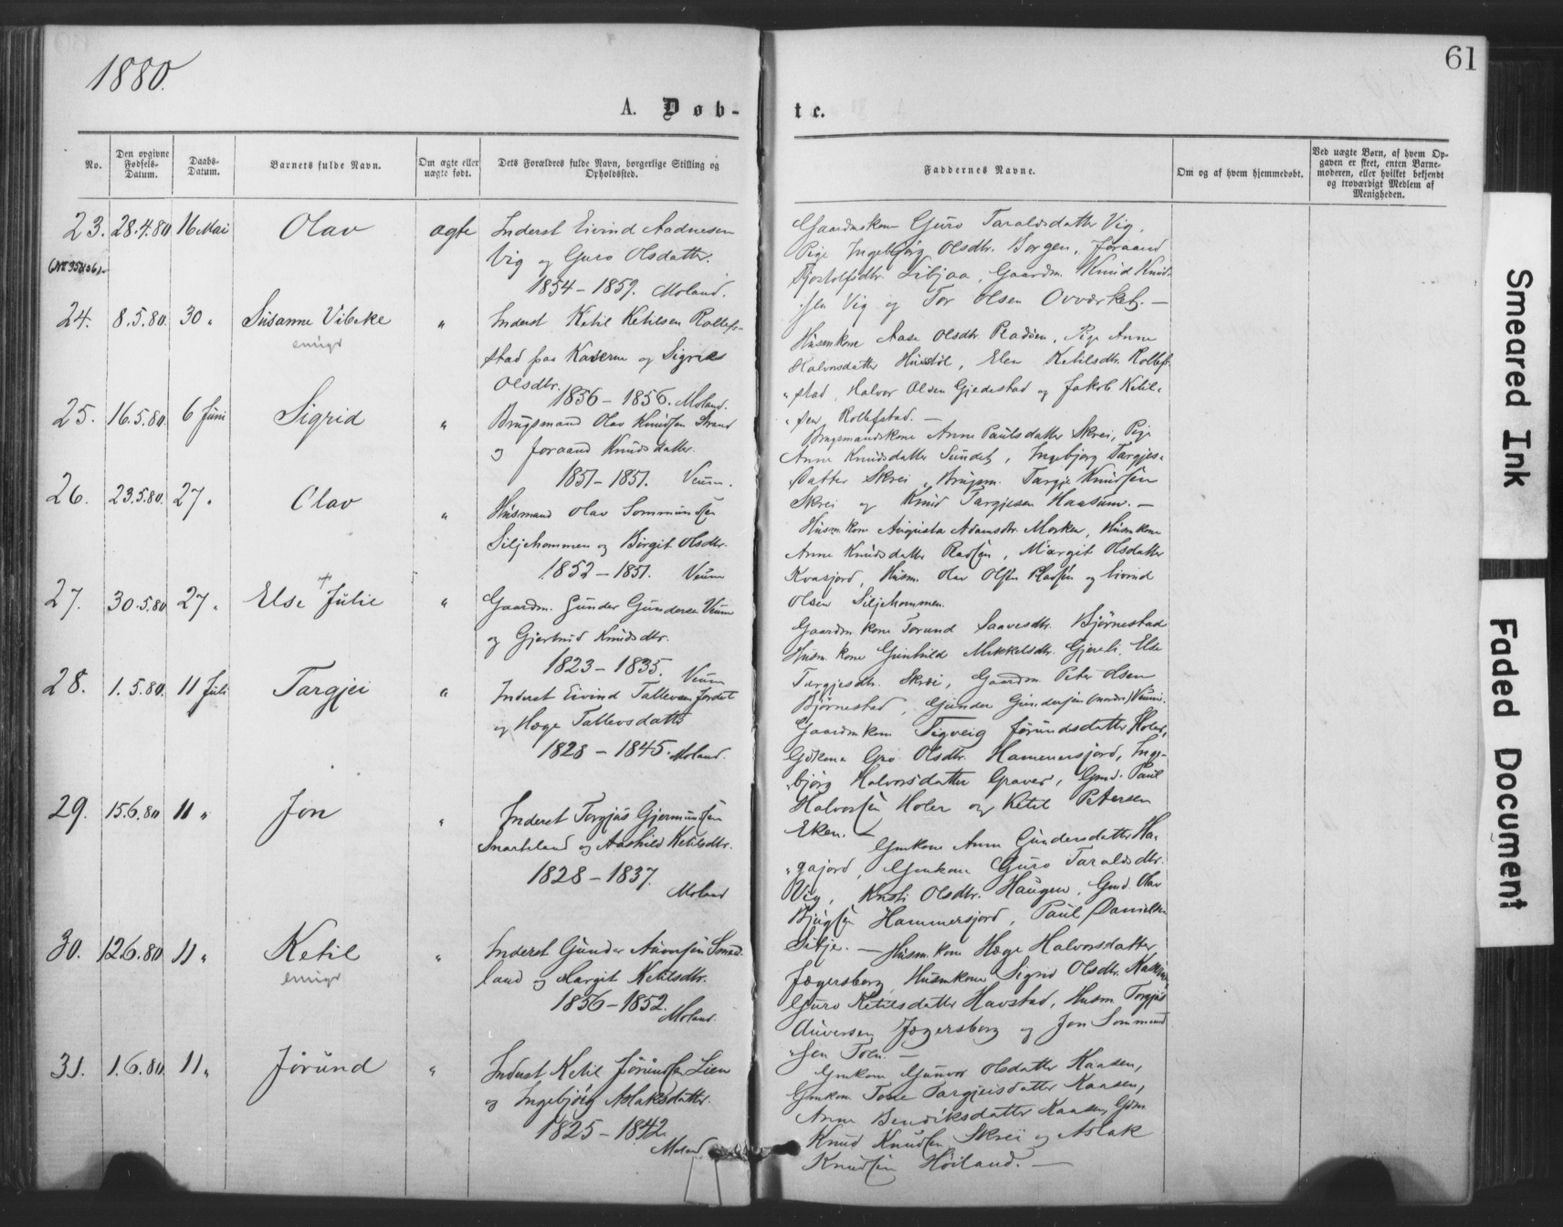 1880.
61
A. Døb-
te.
No.
Den opgivne Fødsels-Datum.
Daabs-Datum.
Barnets fulde Navn.
Om ægte eller uægte født.
Dets Forældres fulde Navn, borgerlige Stilling og Opholdssted.
Faddernes Navne.
Om og af hvem hjemmedøbt.
Ved uægte Børn, af hvem Opgaven er skeet, enten Barnemoderen, eller hvilket bekjendt og troværdigt Medlem af Menigheden.
23. 28.4.80 16 Mai Olav ægte Inderst Eivind Aadnesen
Vig og Guro Olsdatter.
1854 - 1859. Moland.
Gaardmkone Guro Taraldsdatter Vig,
Pige Ingebjørg Olsdtr. Borgen, Joraand
Gaardm. Knud Knud-
sen Vig og Tor Olsen
24. 8.5.80. 30 " Susanne Vibeke " Inderst Ketil Ketilsen Rollefs-
emigr
stad paa Kaserne og Sigrid
Olsdtr.
1856 - 1856. Moland.
Husmkone Aase Olsdtr. Pladsen, Pige Anne
Halvorsdatter Elen Ketilsdtr. Rollef-
stad, Halvor Olsen Gjedestad og Jakob Ketil-
sen Rollefstad. —
25. 16.5.80. 6 Juni Sigrid " Brugsmand Olav Knudsen Strand
og Joraand Knudsdatter.
1851 - 1851. Veum.
Brugsmandskone Anne Paulsdatter Skrei, Pige
Anne Knudsdatter Sundet, Ingebjørg Targjes-
datter Skrei, Brugsm. Targje Knudsen
Skrei og Knud Targjesen Haasum. —
26. 23.5.80. 27 " Olav " Husmand Olav Sommundsen
Siljehommen og Birgit Olsdtr.
1852 - 1851. Veum
Husmkone Augusta Adamsdtr. Morken, Husmkone
Anne Knudsdatter Pladsen, Margit Olsdatter
Kvasjord, Husm. Olav Olsen Pladsen og Eivind
Olsen Siljehommen.
27. 30.5.80 27 " Else Julie " Gaardm. Gunder Gundersen Veum
+
og Gjertrud Knudsdtr.
1823 - 1835. Veum
Gaardmkone Torund Saavesdtr. Bjørnestad
Husm.kone Gunhild Mikkelsdtr. Else
Targjesdtr. Skrei, Gaardm. Peter Olsen
Bjørnestad, Gunder Gundersen Veum.
28. 1.5.80 11 Juli Targjei " Inderst Eivind Tallevsen Jordet
og Hæge Tallevsdatter
1828 - 1845. Moland.
Gaardmkone Sigveig Jørundsdatter Holer,
Gro Olsdtr. Hammersjord, Inge-
bjørg Halvorsdatter Graver, Gmd. Paul
Halvorsen Holer og Ketil Petersen
Eken. —
29. 15.6.80 11 " Jon " Inderst Torgjus Gjermundsen
Snarteland og Aashild Ketilsdtr.
1828 - 1837.
Moland
Gmkone Anne Gundersdatter Ha-
gajord, Gmkone Guro Taraldsdtr.
Vig, Kristi Olsdtr. Haugen, Gmd. Olav
Hammersjord, Paul Danielsen
Silje. —
30. 12.6.80 11 " Ketil " Inderst Gunder Auversen
emigr
land og Margit Ketilsdtr.
1856 - 1852.
Moland.
Husm.kone Hæge Halvorsdatter
Jægersborg, Husmkone Sigrid Olsdtr.
Guro Ketilsdatter Havstad, Husm. Torgjus
Auversen Jægersborg og Jon Sommund-
sen
31. 1.6.80. 11 " Jørund " Inderst Ketil Jørundsen Lien
og Ingebjørg Aslaksdatter.
1825 - 1842.
Moland.
Gmkone Gunvor Olsdatter Haasen,
Gmkone Tone Targjeisdatter Kaasen,
Anne Bendiksdatter Kaasen, Gdm
Knud Knudsen Skrei og Aslak
Knudsen Høiland. —
Smeared Ink
Faded Document